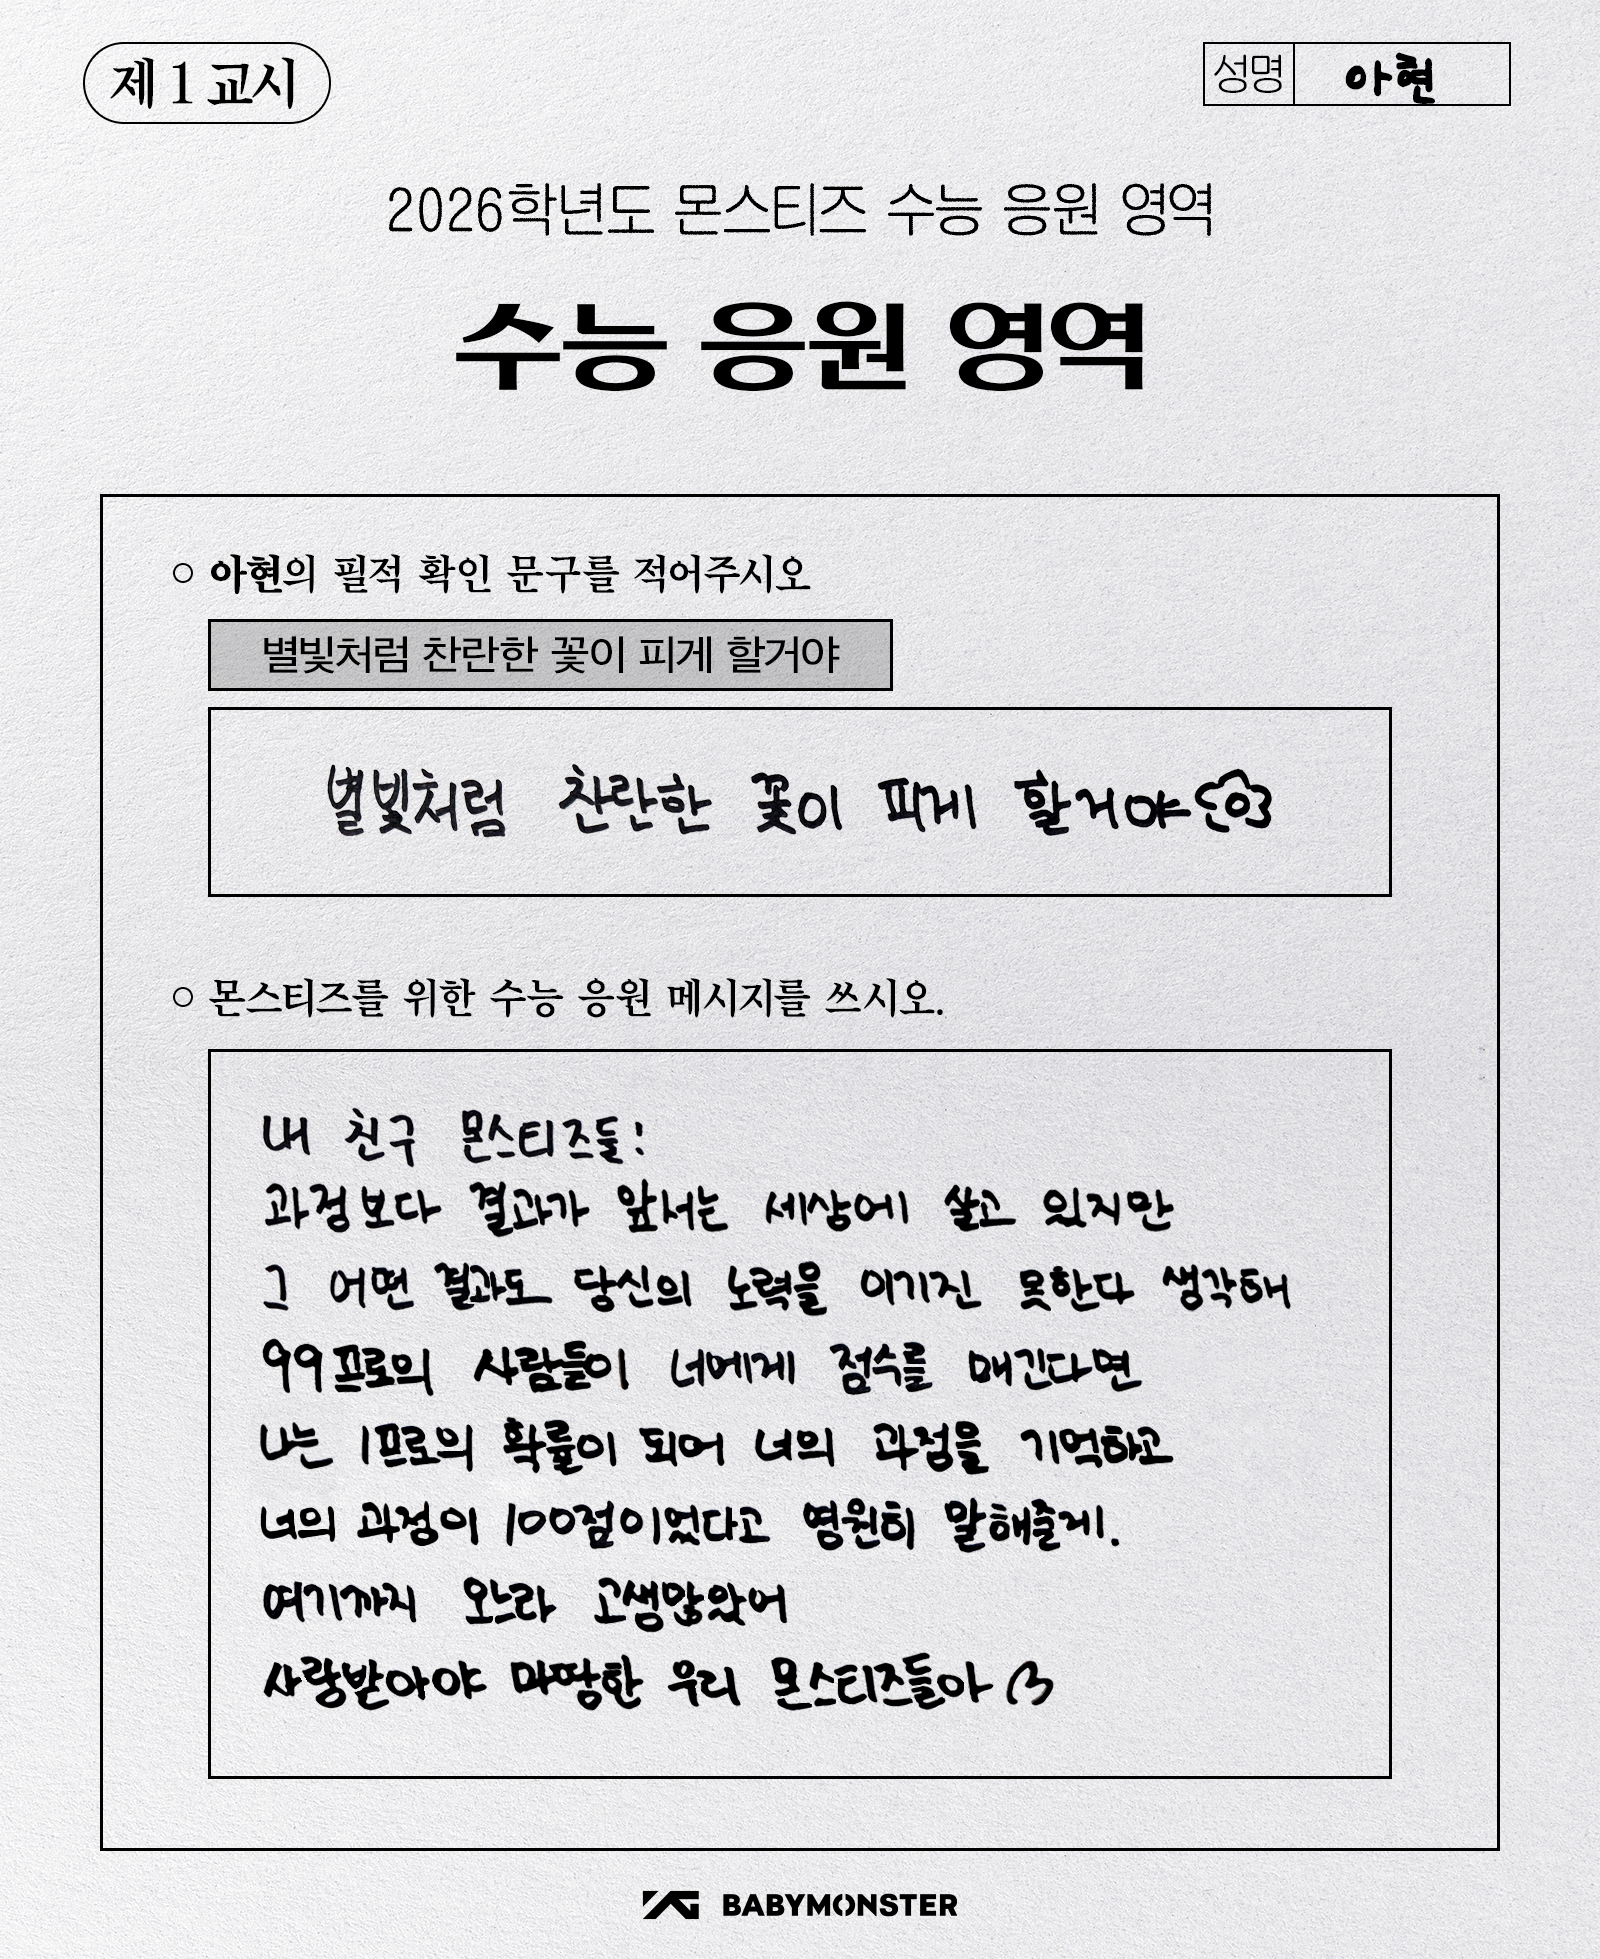 제 1 교시
성명 아현
2026학년도 몬스티즈 수능 응원 영역
수능 응원 영역
○ 아현의 필적 확인 문구를 적어주시오
별빛처럼 찬란한 꽃이 피게 할거야
별빛처럼 찬란한 꽃이 피게 할거야
○ 몬스티즈를 위한 수능 응원 메시지를 쓰시오.
내 친구 몬스티즈들!
과정보다 결과가 앞서는 세상에 살고 있지만
그 어떤 결과도 당신의 노력을 이기진 못한다 생각해
99프로의 사람들이 너에게 점수를 매긴다면
나는 1프로의 확률이 되어 너의 과정을 기억하고
너의 과정이 100점이었다고 영원히 말해줄게.
여기까지 오느라 고생많았어
사랑받아야 마땅한 우리 몬스티즈들아
YG BABYMONSTER